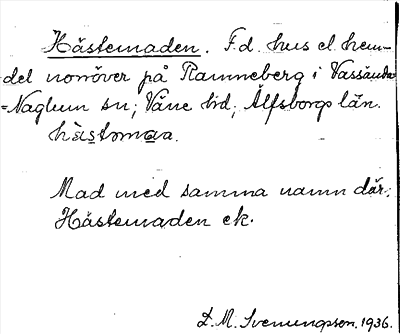 Hästemaden. F.d. hus el. hem-
del norröver på Ramneberg i Vassända
=Naglum sn; Väne hd; Älfsborgs län.
hästomaa.
Mad med samma namn där:
Hästemaden ek.
D. M. Svenungsson. 1936.